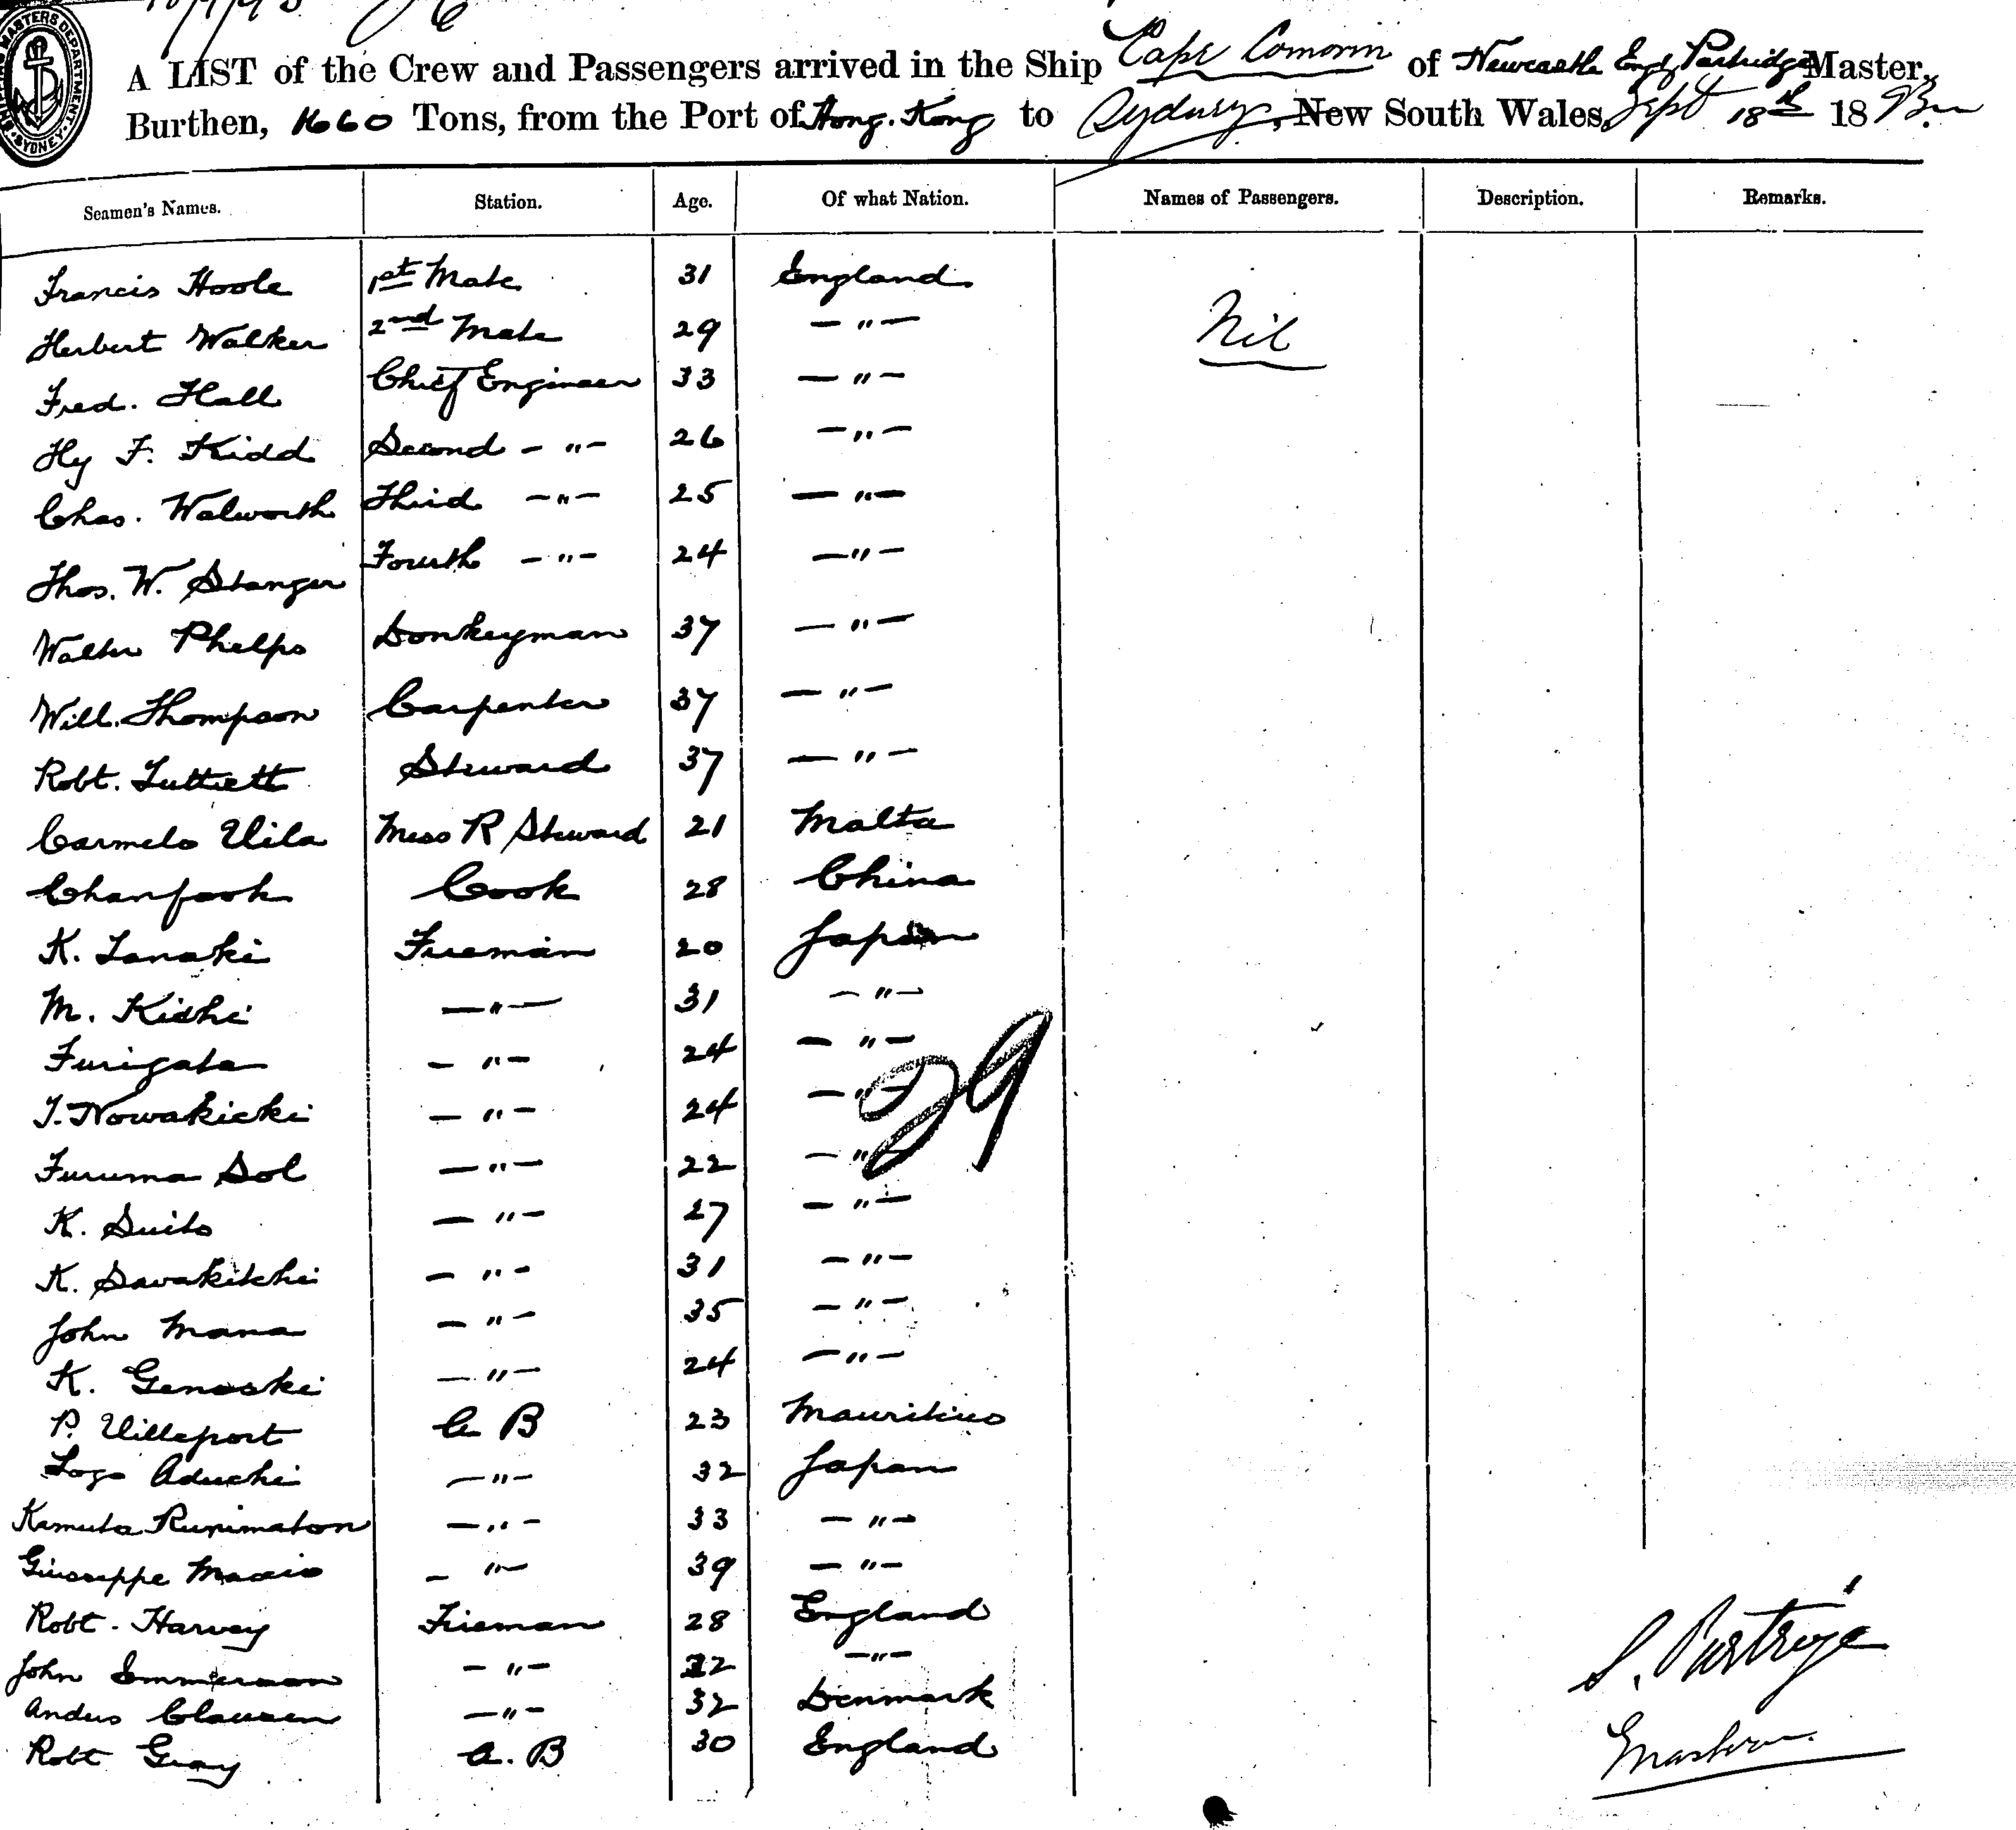 A LIST of the Crew and Passengers arrived in the Ship Cape Comorin of Newcastle Engd, Partridge Master,
Burthen, 1660 Tons, from the Port of Hong. Kong to Sydney, New South Wales, Sept 18th 1893
Seamen's Names. Station. Age. Of what Nation. Names of Passengers. Description. Remarks.
Francis Hoole 1st Mate 31 England Nil
Herbert Walker 2nd Mate 29 — " —
Fred. Hall Chief Engineer 33 — " —
Hy F. Kidd Second - " - 26 — " —
Chas. Walworth Third - " - 25 — " —
Thos. W. Stanger Fourth - " - 24 — " —
Walter Phelps Donkeyman 37 — " —
Will. Thompson Carpenter 37 — " —
Robt. Luttrett Steward 37 — " —
Carmelo Vila Mess R Steward 21 Malta
Chanfook Cook 28 China
K. Tanaki Fireman 20 Japan
M. Kidhi — " — 31 — " —
Furigata — " — 24 — " —
T. Nowakicki — " — 24 — " —
29
Furuma Sol — " — 22 — " —
K. Suito — " — 27 — " —
K. Savakitchi — " — 31 — " —
John Mana — " — 35 — " —
K. Genoski — " — 24 — " —
P. Villeport A B 23 Mauritius
Aduchi — " — 32 Japan
Kamuta Runimaton — " — 33 — " —
Giuseppe — " — 39 — " —
Robt. Harvey Fireman 28 England
John — " — — " —
Anders Clausen — " — 32 Denmark
Robt Gray A. B 30 England
S. Partridge
Master